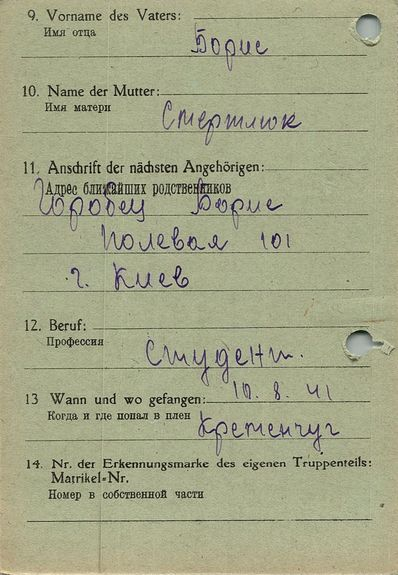 9. Vorname des Vaters:
Имя отца
Борис
10. Name der Mutter:
Имя матери
Стертлюк
11. Anschrift der nächsten Angehörigen:
Адрес ближайших родственников
Горобец Борис
Полевая 101
г. Киев
12. Beruf:
Профессия
Студент.
13 Wann und wo gefangen: 10. 8. 41
Когда и где попал в плен
Кременчуг
14. Nr. der Erkennungsmarke des eigenen Truppenteils:
Matrikel-Nr.
Номер в собственной части